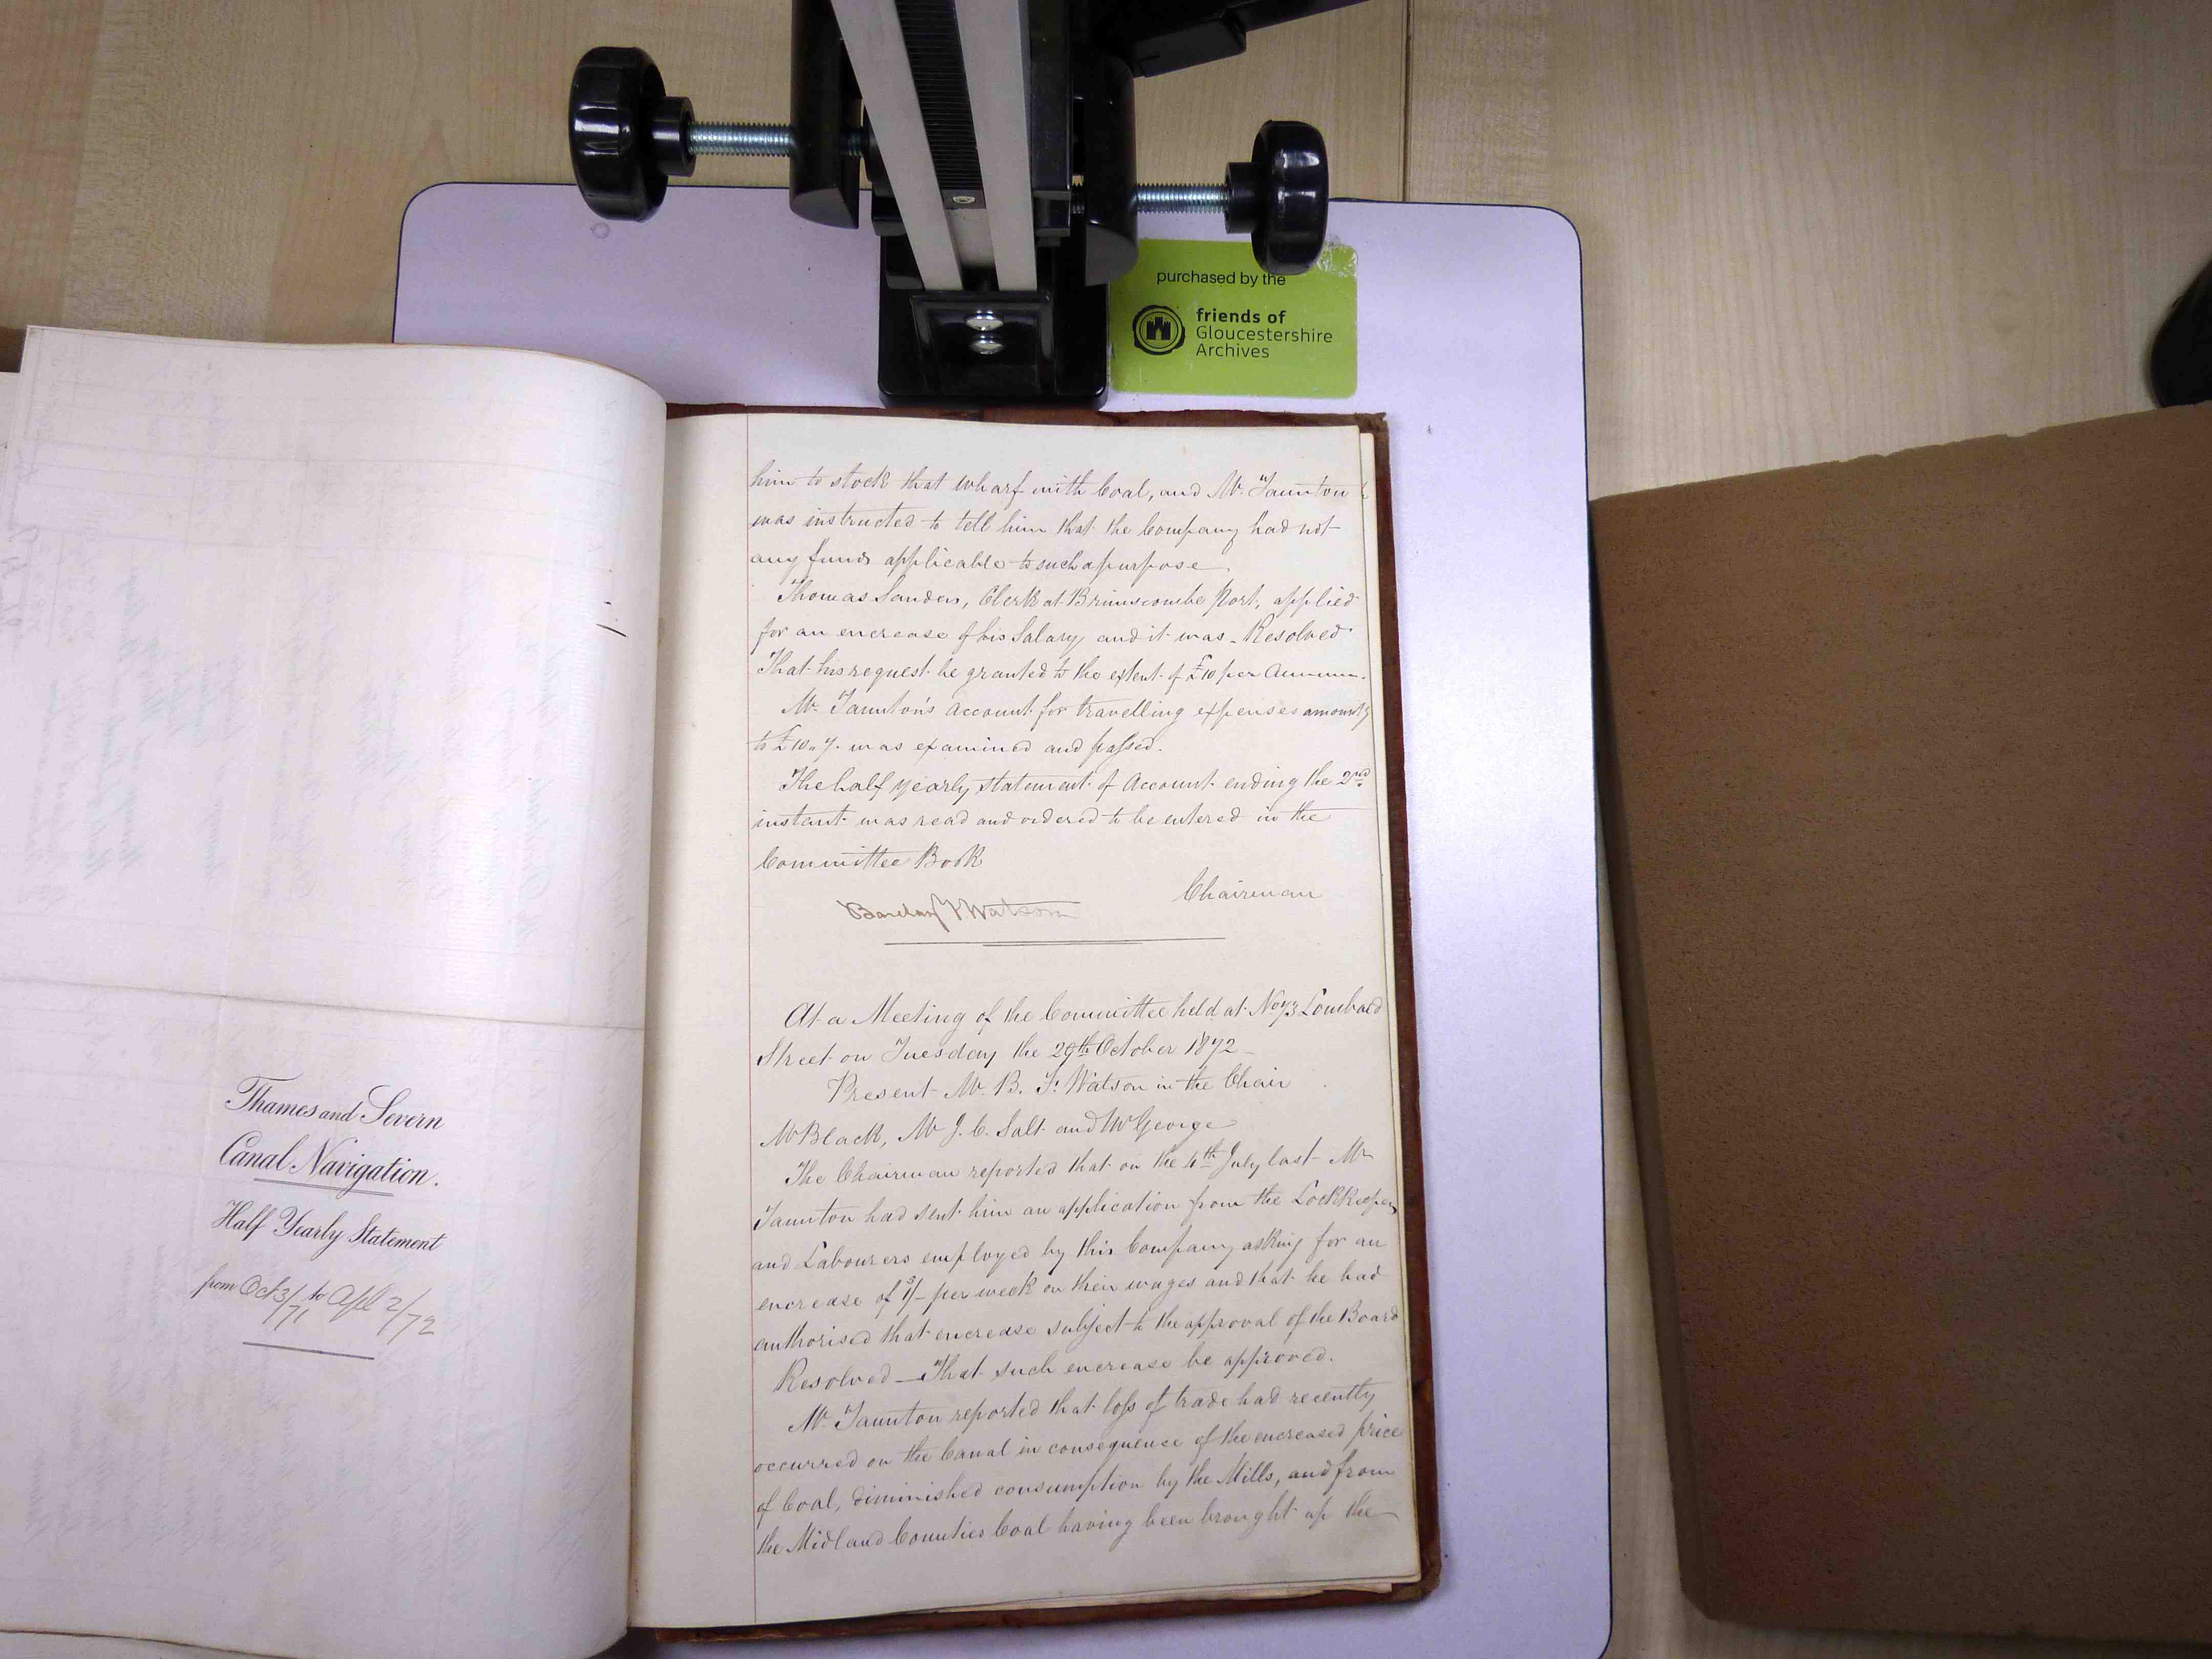 purchased by the
friends of
Gloucestershire
Archives
Thames and Severn
Canal Navigation.
Half Yearly Statement
from Oct 3/71 to Apl 2/72
him to stock that Wharf with Coal, and Mr. Taunton
was instructed to tell him that the Company had not
any funds applicable to such a purpose.
Thomas Sanders, Clerk at Brimscombe Port, applied
for an encrease of his Salary and it was - Resolved
That his request be granted to the extent of £10 per Annum.
Mr. Taunton's Account for travelling expenses amountg
to £10 . 7. was examined and passed.
The half yearly statement of Account ending the 2nd
instant was read and ordered to be entered in the
Committee Book
Chairman
Barclay F Watson
At a Meeting of the Committee held at No 73 Lombard
Street on Tuesday the 29th October 1872
Present Mr. B. F. Watson in the Chair
Mr Black, Mr J. C. Salt and Mr George
The Chairman reported that on the 4th July last Mr
Taunton had sent him an application from the Lockkeepers
and Labourers employed by this Company asking for an
encrease of 1s/- per week on their wages and that he had
authorised that encrease subject to the approval of the Board
Resolved — That such encrease be approved.
Mr. Taunton reported that loss of trade had recently
occurred on the Canal in consequence of the encreased price
of Coal, diminished consumption by the Mills, and from
the Midland Counties Coal having been brought up the